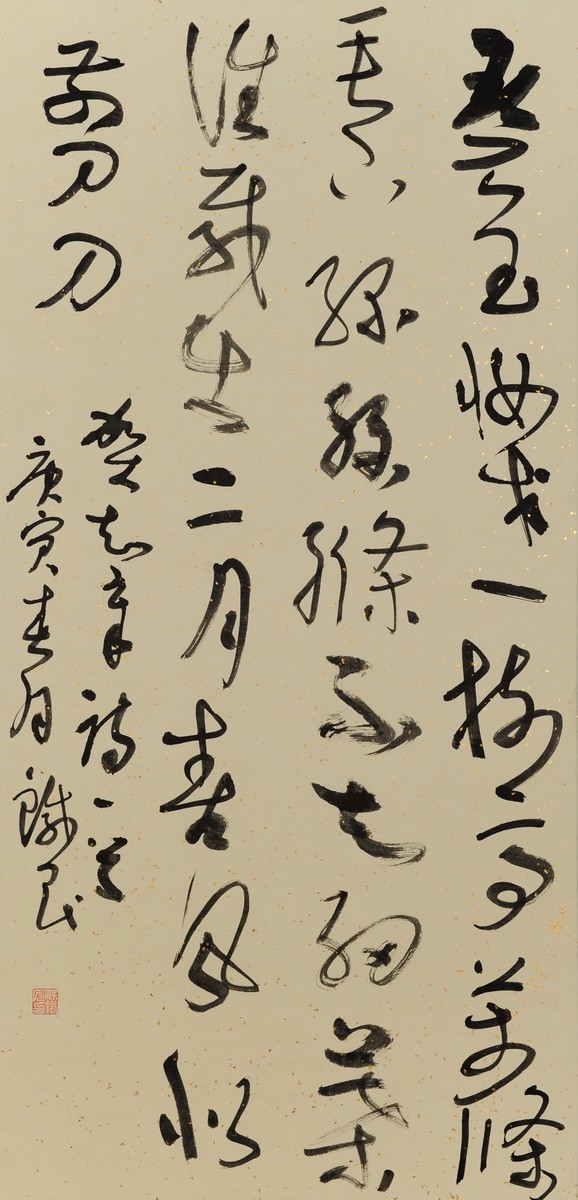 碧玉妝成一樹高萬條
垂下綠絲縧不知細葉
誰裁出二月春風似
剪刀
賀知章詩一首
庚寅春月